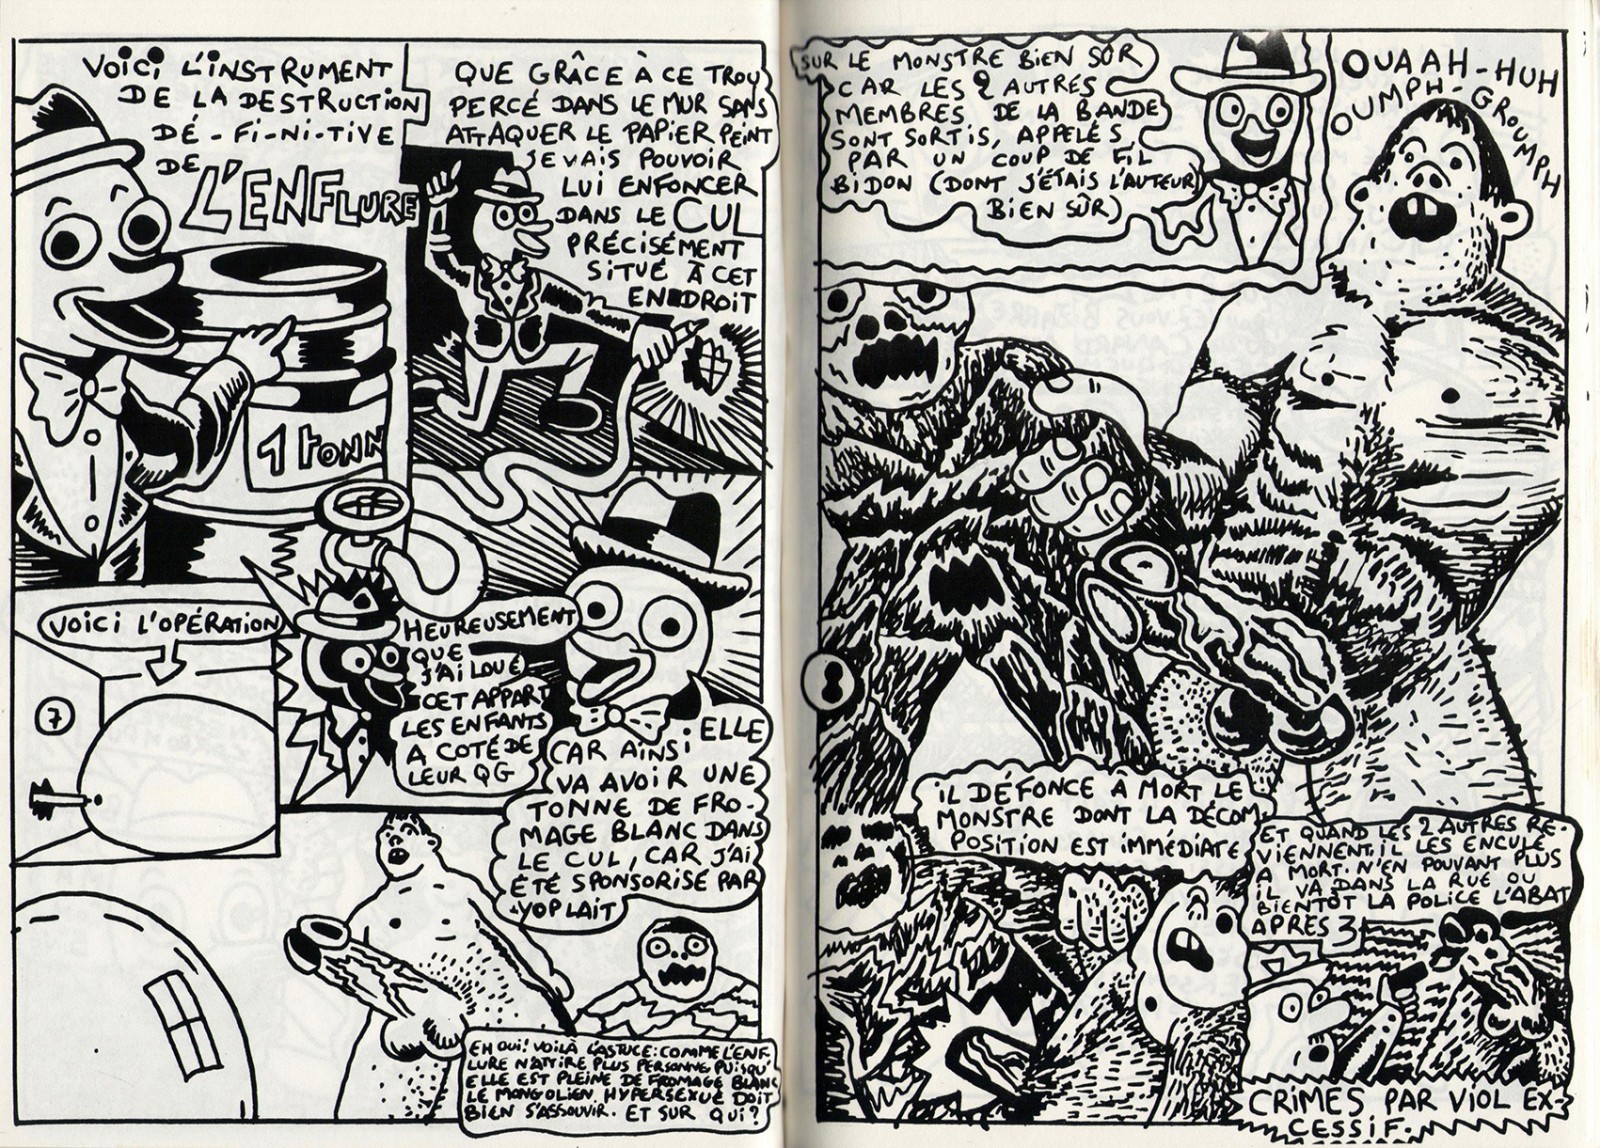 VOICI L'INSTRUMENT
DE LA DESTRUCTION
DÉ-FI-NI-TIVE
DE L'ENFLURE
1 TONN
QUE GRÂCE À CE TROU
PERCÉ DANS LE MUR SANS
ATTAQUER LE PAPIER PEINT
JE VAIS POUVOIR
LUI ENFONCER
DANS LE CUL
PRÉCISÉMENT
SITUÉ À CET
ENDROIT
VOICI L'OPÉRATION
7
HEUREUSEMENT
QUE
J'AI LOUÉ
CET APPART
LES ENFANTS
A COTÉ DE
LEUR QG
CAR AINSI ELLE
VA AVOIR UNE
TONNE DE FRO-
MAGE BLANC DANS
LE CUL, CAR J'AI
ÉTÉ SPONSORISÉ PAR
YOPLAIT
EH OUI! VOILÀ L'ASTUCE: COMME L'ENF
LURE N'ATTIRE PLUS PERSONNE PUISQU'
ELLE EST PLEINE DE FROMAGE BLANC
LE MONGOLIEN HYPERSEXUÉ DOIT
BIEN S'ASSOUVIR. ET SUR QUI?
SUR LE MONSTRE BIEN SÛR
CAR LES 2 AUTRES
MEMBRES DE LA BANDE
SONT SORTIS, APPELÉS
PAR UN COUP DE FIL
BIDON (DONT J'ÉTAIS L'AUTEUR
BIEN SÛR)
OUAAH-HUH
OUMPH-GROUMPH
8
IL DÉFONCE À MORT LE
MONSTRE DONT LA DÉCOM
POSITION EST IMMÉDIATE
ET QUAND LES 2 AUTRES RE-
VIENNENT, IL LES ENCULE
A MORT. N'EN POUVANT PLUS
IL VA DANS LA RUE OU
BIENTÔT LA POLICE L'ABAT
APRÈS 3
CRIMES PAR VIOL EX-
CESSIF.